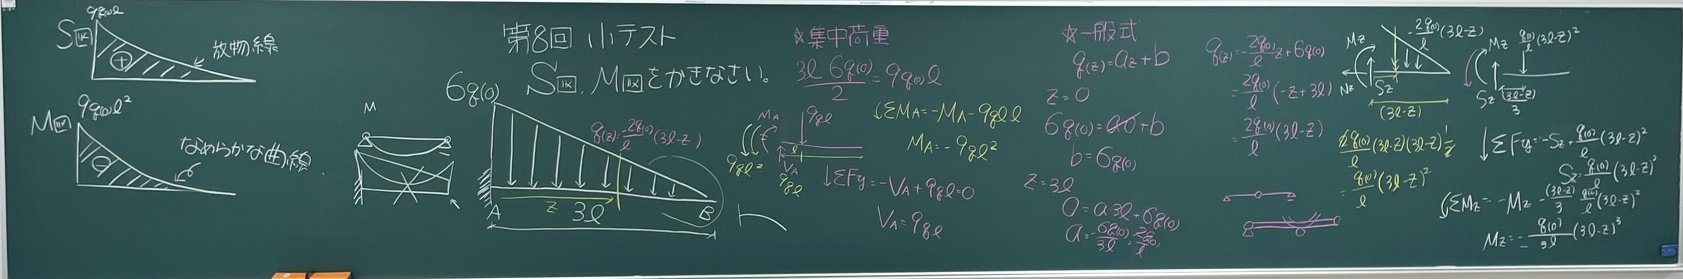 S図
9q(0)l
⊕
放物線
M図
9q(0)l²
⊖
なめらかな曲線
M
第8回 小テスト
S図、M図をかきなさい。
6q(0)
q(z)=-2q(0)/l(3l-z)
A
z
3l
B
☆集中荷重
3l 6q(0)/2=9q(0)l
MA
9ql
l
9ql²
VA
9ql
ΣMA=-MA-9ql l
MA=-9ql²
↓ΣFy=-VA+9ql=0
VA=9ql
☆一般式
q(z)=az+b
z=0
6q(0)=a0+b
b=6q(0)
z=3l
0=a3l+6q(0)
a=-6q(0)/3l=-2q(0)/l
q(z)=-2q(0)/l z+6q(0)
=2q(0)/l(-z+3l)
=2q(0)/l(3l-z)
2q(0)/l(3l-z)
Mz
Nz
Sz
(3l-z)
2q(0)/l(3l-z)(3l-z)1/2
=q(0)/l(3l-z)²
Mz
q(0)/l(3l-z)²
Sz
(3l-z)/3
↓ΣFy=-Sz+q(0)/l(3l-z)²
Sz=q(0)/l(3l-z)²
ΣMz=-Mz-(3l-z)/3 q(0)/l(3l-z)²
Mz=-q(0)/3l(3l-z)³